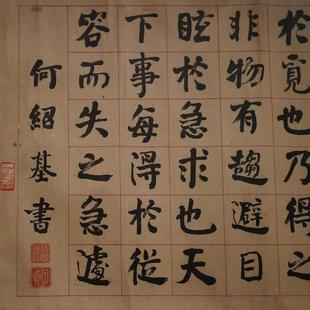 於寬也乃得之
非物有趨避目
眩於急求也天
下事每得於從
容而失之急遽
何紹基書